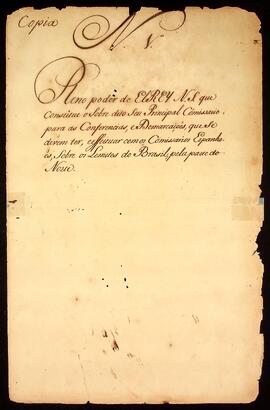 Copia
N. V.
Pleno poder de ELREY N. S. que
Constitue o Sobre dito Seu Principal Comissario
para as Conferencias, e Demarcaçois, que se
devem ter, e effetuar com os Comissarios Espanho
es, Sobre os Lemites do Brasil, pela parte do
Norte.